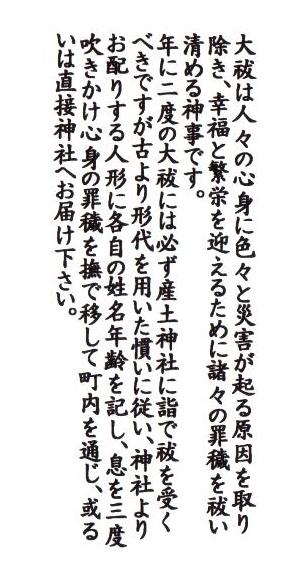 大祓は人々の心身に色々と災害が起る原因を取り
除き、幸福と繁栄を迎えるために諸々の罪穢を祓い
清める神事です。
年に二度の大祓には必ず産土神社に詣で祓を受く
べきですが古より形代を用いた慣いに従い、神社より
お配りする人形に各自の姓名年齢を記し、息を三度
吹きかけ心身の罪穢を撫で移して町内を通じ、或る
いは直接神社へお届け下さい。